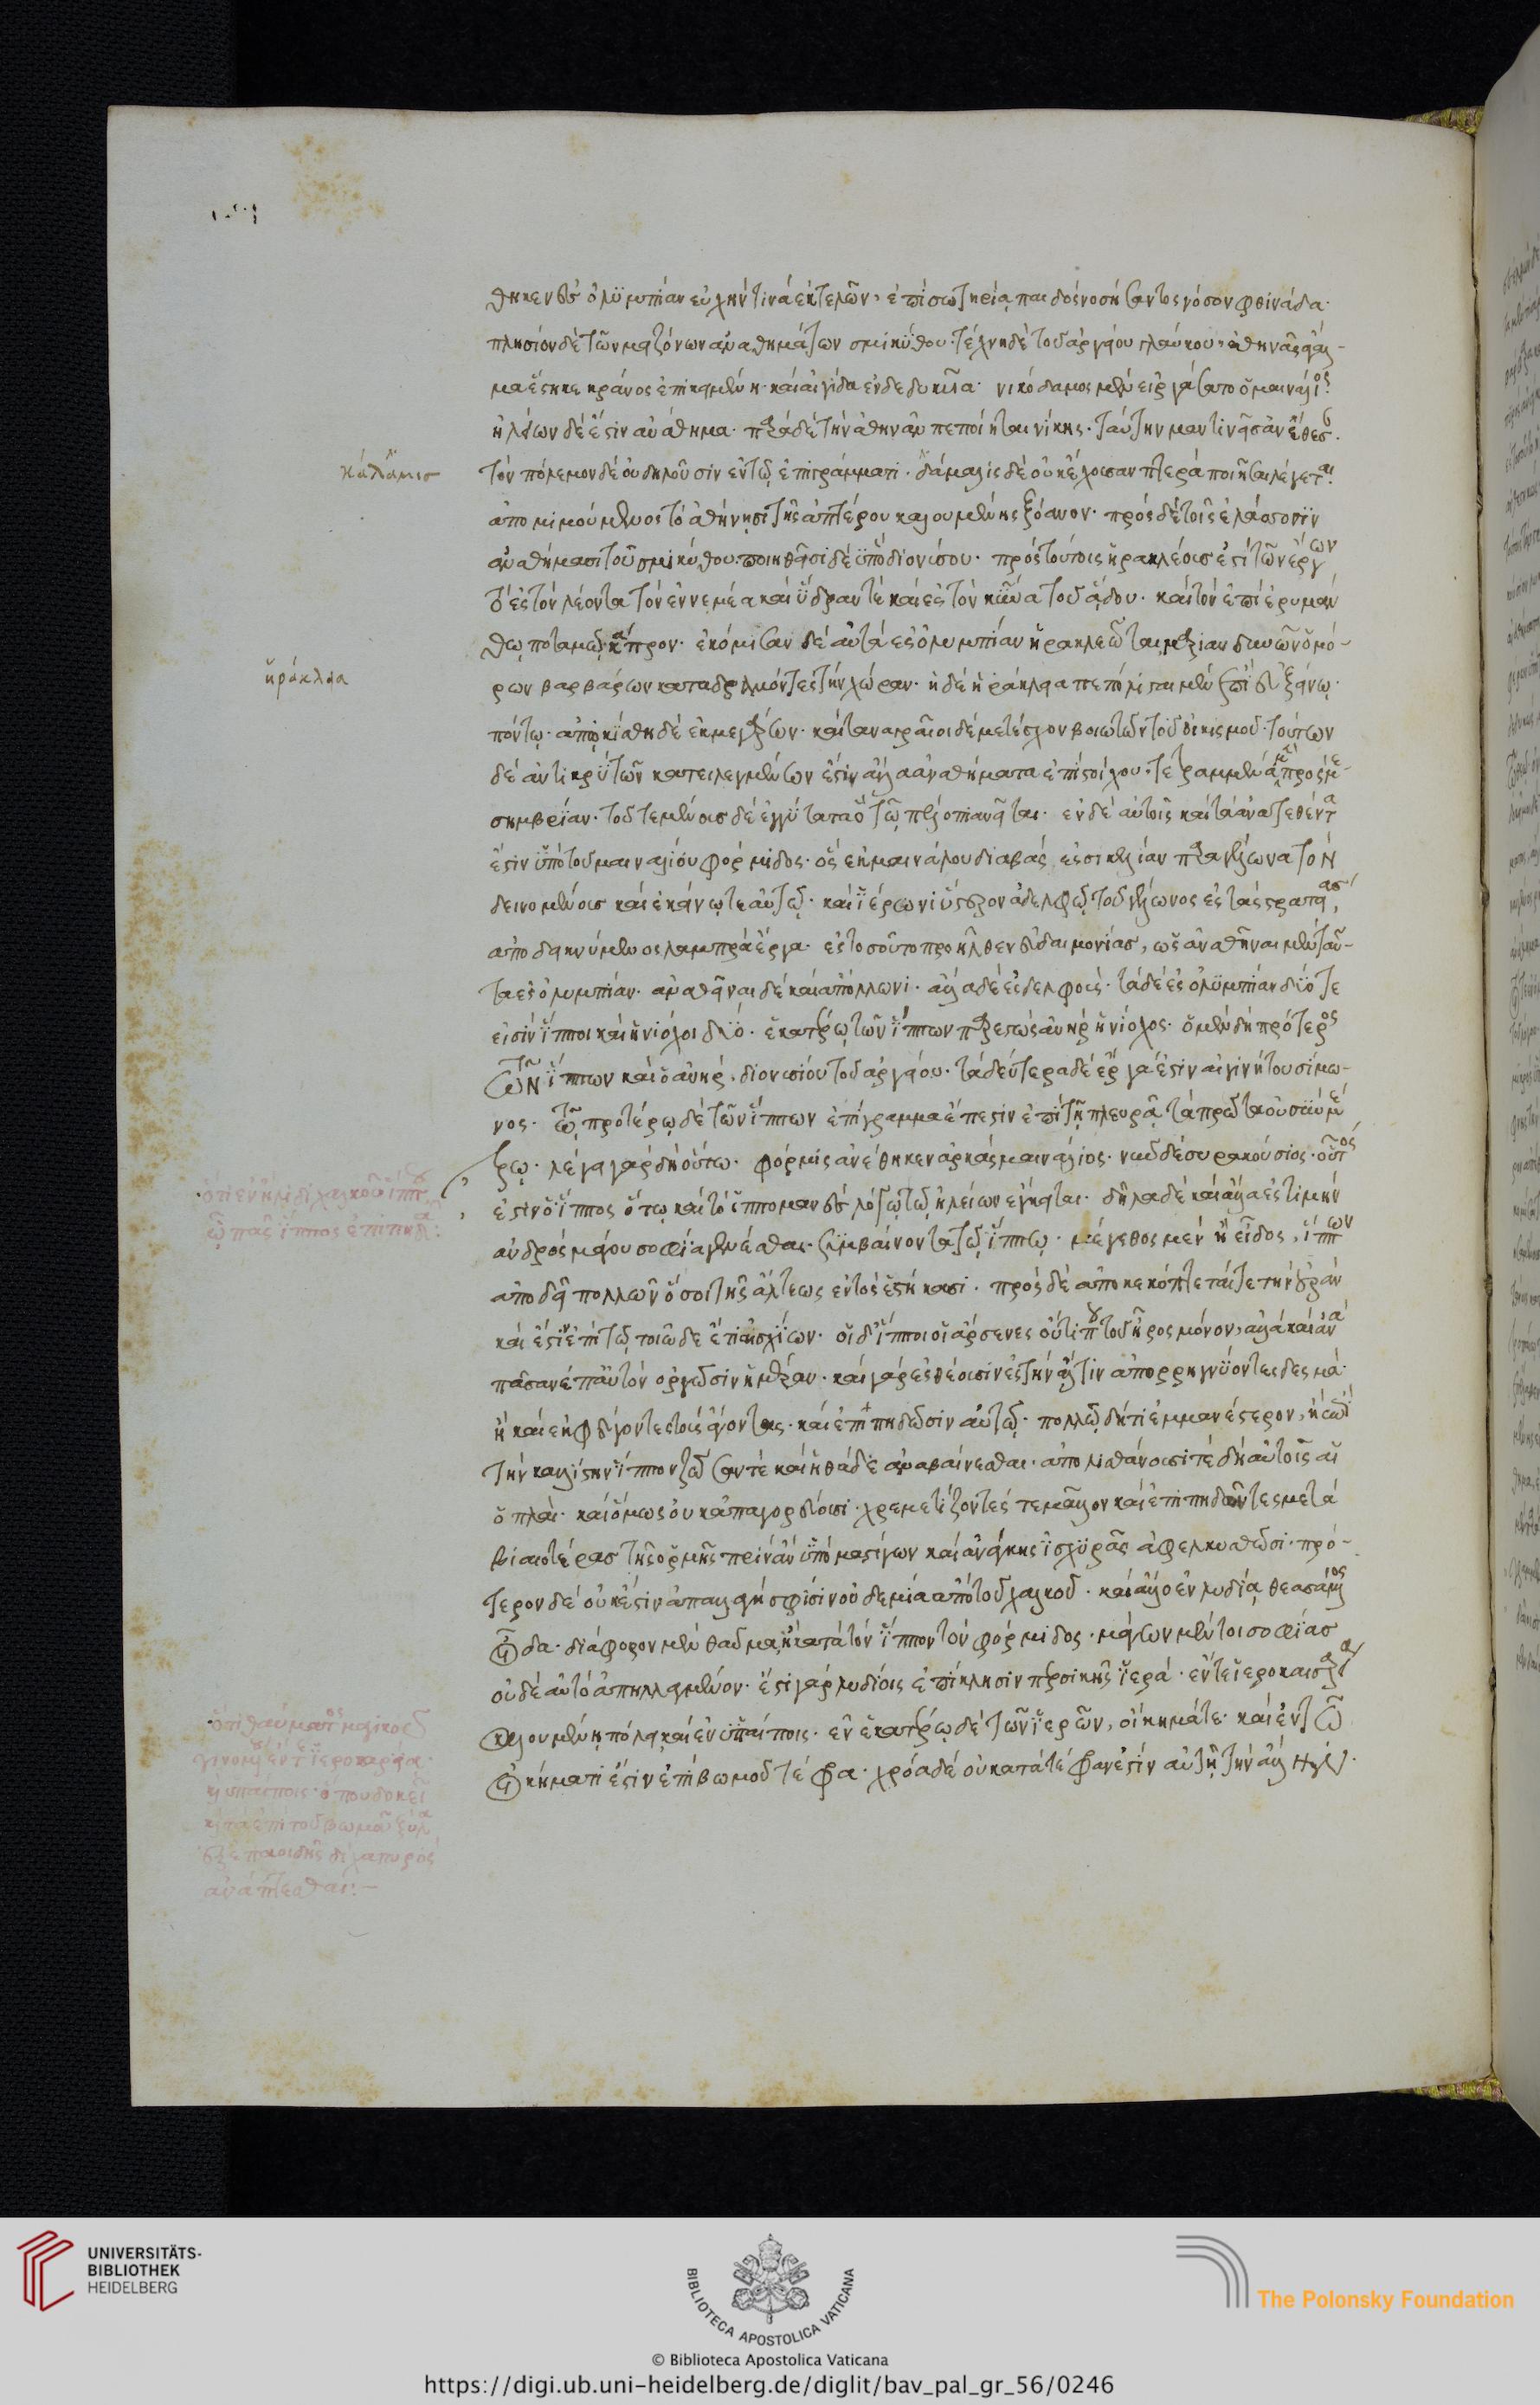 θηκεν ἐς ὀλυμπίαν εὐχήν τινα ἐκτελῶν, ἐπὶ σωτηρίᾳ παιδὸς νοσήσαντος νόσον φθινάδα·
πλησίον δὲ τῶν μειζόνων ἀναθημάτων σμικύθου· τέχνη δὲ τοῦ ἀργείου γλαύκου· ἀθηνᾶς ἄγαλ-
μα ἕστηκε κράνος ἐπικειμένη· καὶ αἰγίδα ἐνδεδυκυῖα· νικόδαμος μὲν εἰργάσατο ὁ μαινάλιος·
ἠλείων δέ ἐστιν ἀνάθημα· παρὰ δὲ τὴν ἀθηνᾶν πεποίηται νίκης· ταύτην μαντινεῖς ἀνέθεσαν·
κάλαμις
τὸν πόλεμον δὲ οὐ δηλοῦσιν ἐν τῷ ἐπιγράμματι· δάμαλις δὲ οὐκ ἔχουσαν πτερὰ ποιῆσαι λέγεται·
ἀπομιμούμενος τὸ ἀθήνησι τῆς ἀπτέρου καλουμένης ξόανον· πρὸς δὲ τοῖς ἐλάσσοσιν
ἀναθήμασι τοῦ σμικύθου ποιηθεῖσι δὲ ὑπὸ διονυσίου· πρὸς τούτοις ἡρακλέους ἐστὶ τῶν ἔργων
τὸ ἐς τὸν λέοντα τὸν ἐν νεμέᾳ καὶ ὕδραν τὲ καὶ ἐς τὸν κύνα τοῦ ᾅδου· καὶ τὸν ἐπὶ ἐρυμάν
θῳ ποταμῷ κάπρον· ἐκόμισαν δὲ αὐτὰ ἐς ὀλυμπίαν ἡρακλεῶται μαριανδυνῶν ὁμό-
ἡράκλεια
ρων βαρβάρων καταδραμόντες τὴν χώραν· ἡ δὲ ἡράκλεια πεπόλισται μὲν ἐπὶ εὐξείνῳ
πόντῳ· ἀπῳκίσθη δὲ ἐκ μεγάρων· καὶ ταναγραῖοι δὲ μετέσχον βοιωτῶν τοῦ οἰκισμοῦ· τούτων
δὲ ἀντικρὺ τῶν κατειλεγμένων ἐστὶν ἄλλα ἀναθήματα ἐπὶ στοίχου· τετραμμένα μὲν πρὸς με-
σημβρίαν· τοῦ τεμένους δὲ ἐγγύτατα ὃ τῷ πέλοπι ἀνεῖται· ἐν δὲ αὐτοῖς καὶ τὰ ἀνατεθέντα
ἐστὶν ὑπὸ τοῦ μαιναλίου φόρμιδος· ὃς ἐκ μαινάλου διαβὰς ἐς σικελίαν παρὰ γέλωνα τὸν
δεινομένους καὶ ἐκείνῳ τε αὐτῷ· καὶ ἱέρωνι ὕστερον ἀδελφῷ τοῦ γέλωνος ἐς τὰς στρατείας,
ἀποδεικνύμενος λαμπρὰ ἔργα· ἐς τοσοῦτο προῆλθεν εὐδαιμονίας, ὡς ἀναθεῖναι μὲν ταῦ-
τα ἐς ὀλυμπίαν· ἀναθεῖναι δὲ καὶ ἀπόλλωνι· ἄλλα δὲ ἐς δελφούς· τὰ δὲ ἐς ὀλυμπίαν δύο τε
εἰσὶν ἵπποι καὶ ἡνίοχοι δύο· ἑκατέρῳ τῶν ἵππων παρεστὼς ἀνὴρ ἡνίοχος· ὁ μὲν δὴ πρότερος
τῶν ἵππων καὶ ὁ ἀνήρ· διονυσίου τοῦ ἀργείου· τὰ δεύτερα δὲ ἔργα ἐστὶν αἰγινήτου σίμω-
νος· τῷ προτέρῳ δὲ τῶν ἵππων ἐπίγραμμα ἔπεστιν ἐπὶ τῇ πλευρᾷ τὰ πρῶτα οὐ σὺν μέ
τρῳ· λέγει γὰρ δὴ οὕτω· φόρμις ἀνέθηκεν ἀρκὰς μαινάλιος· νῦν δὲ συρακούσιος· οὗτος
ὅτι ἐν ἤλιδι χαλκοῦς ἵππος
ᾧ πᾶς ἵππος ἐπιπηδᾶ:
ἐστὶν ὁ ἵππος ὅτῳ καὶ τὸ ἱππομανὲς λόγῳ τῷ ἠλείων ἔγκειται· δῆλα δὲ καὶ ἄλλα ἐστὶ μὴν
ἀνδρὸς μάγου σοφίᾳ γενέσθαι συμβαίνοντα τῷ ἵππῳ· μέγεθος μὲν ἢ εἶδος, ἵππων
ἀποδεῖ πολλῶν ὅσοι τῆς ἄλτεως ἐντὸς ἑστήκασι· πρὸς δὲ ἀποκεκόπτεταί τε τὴν οὐρὰν
καὶ ἔστιν ἐπὶ τῷ τοιῷδε ἔτι αἰσχίων· οἱ δ' ἵπποι οἱ ἄρσενες οὔτι που τοῦ ἦρος μόνον, ἀλλὰ καὶ ἀνὰ
πᾶσαν ἐπ' αὐτὸν ὀργῶσιν ἡμέραν· καὶ γὰρ ἐσθέουσιν ἐς τὴν ἄλτιν ἀπορρηγνύοντες δεσμά·
ἢ καὶ ἐκφεύγοντες τοὺς ἄγοντας· καὶ ἐπιπηδῶσιν αὐτῷ· πολλῷ δή τι ἐμμανέστερον, ἢ ἐπὶ
τὴν καλλίστην ἵππον ζῶσάν τε καὶ ἠθάδα ἀναβαίνεσθαι· ἀπολισθάνουσί τε δὴ αὐτοῖς αἱ
ὁπλαί· καὶ ὅμως οὐκ ἀπαγορεύουσι· χρεμετίζοντές τε μᾶλλον καὶ ἐπιπηδῶντες μετὰ
βιαιοτέρας τῆς ὁρμῆς πρὶν ἂν ὑπὸ μαστίγων καὶ ἀνάγκης ἰσχυρᾶς ἀφελκυσθῶσι· πρό-
τερον δὲ οὐκ ἔστιν ἀπαλλαγή σφισιν οὐδεμία ἀπὸ τοῦ χαλκοῦ· καὶ ἄλλο ἐν λυδίᾳ θεασάμενος
οἶδα· διάφορον μὲν θαῦμα ἢ κατὰ τὸν ἵππον τὸν φόρμιδος· μάγων μέντοι σοφίας
οὐδὲ αὐτὸ ἀπηλλαγμένον· ἔστι γὰρ λυδίοις ἐπίκλησιν περσικῆς ἱερά· ἔν τε ἱεροκαισαρείᾳ
ὅτι θαῦμά τι μαγικὸν
γινόμενον ἔν τε ἱεροκαισαρείᾳ
καλουμένῃ πόλει καὶ ἐν ὑπαίποις· ἐν ἑκατέρῳ δὲ τῶν ἱερῶν, οἴκημά τε· καὶ ἐν τῷ
οἰκήματί ἐστιν ἐπὶ βωμοῦ τέφρα· χρόα δὲ οὐ κατὰ τέφραν ἐστὶν αὐτῇ τὴν ἄλλην·
ἀνάπτεσθαι:-
UNIVERSITÄTS-
BIBLIOTHEK
HEIDELBERG
BIBLIOTECA APOSTOLICA VATICANA
The Polonsky Foundation
© Biblioteca Apostolica Vaticana
https://digi.ub.uni-heidelberg.de/diglit/bav_pal_gr_56/0246